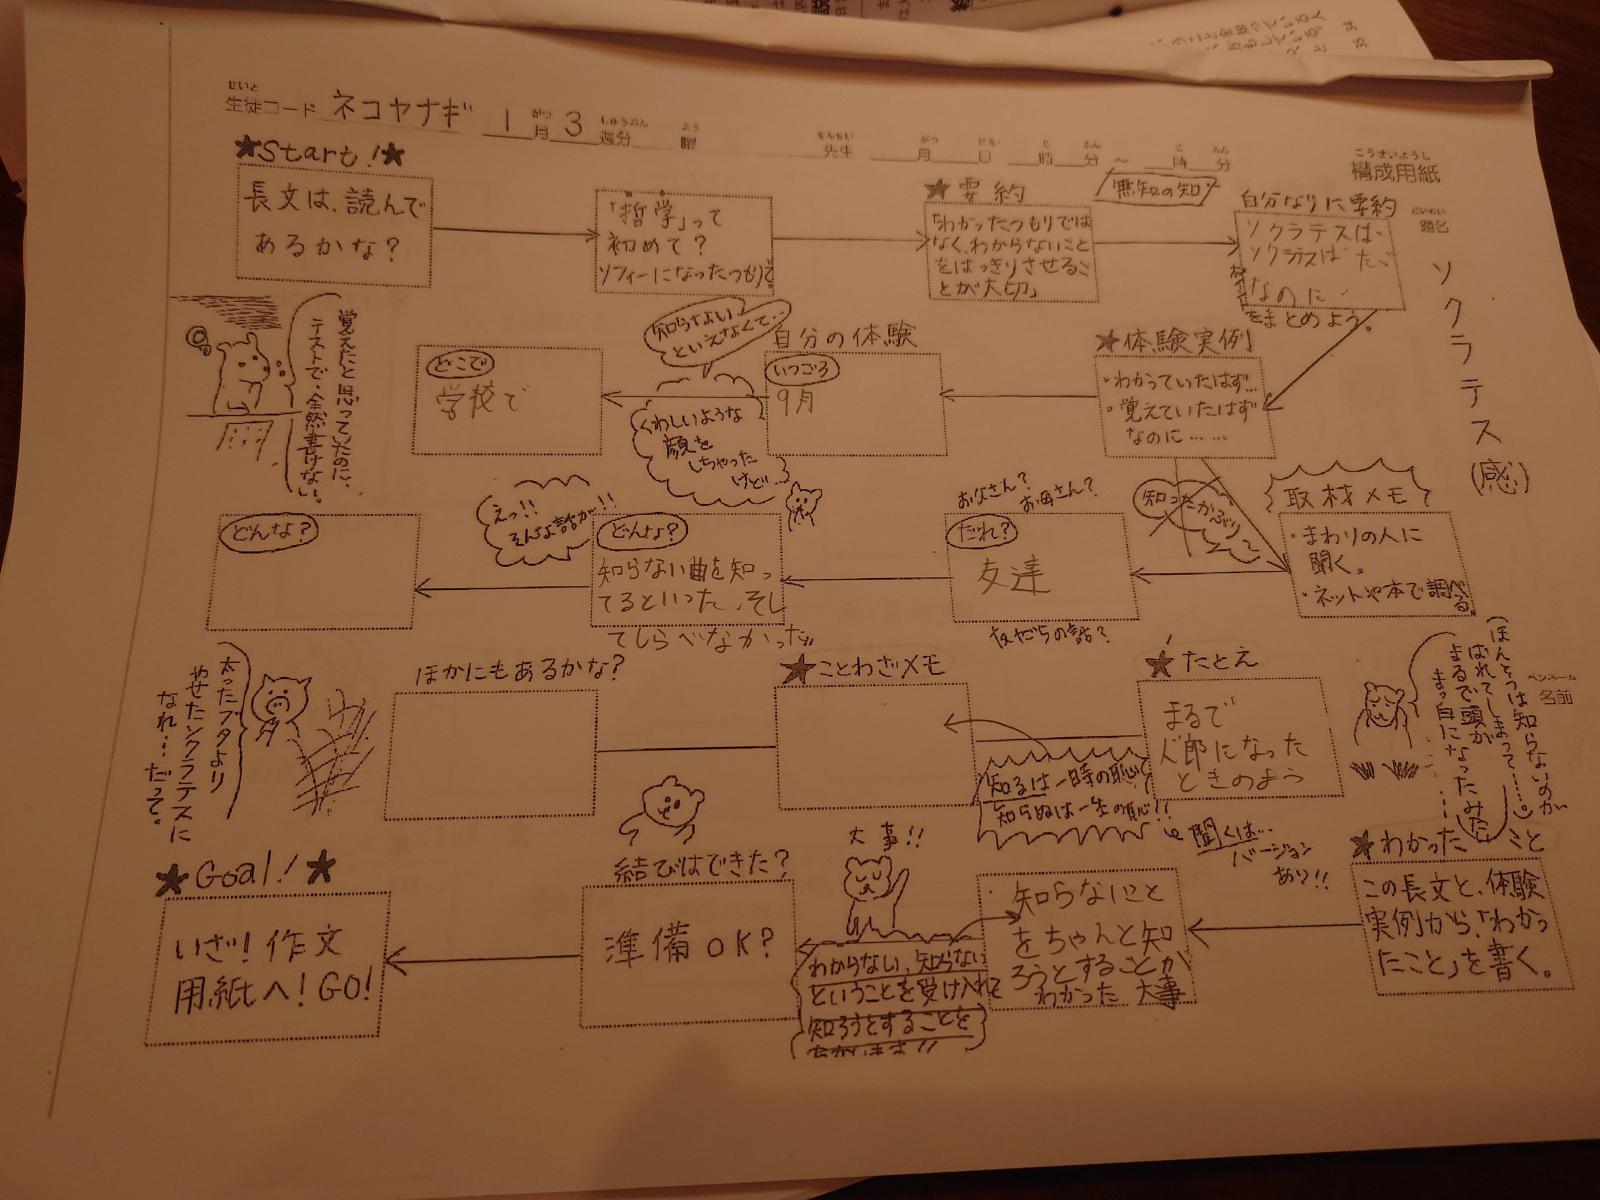 生徒コード ネコヤナギ 1月 3週分 曜
先生 月 日 時 分 ～ 時 分
構成用紙
題名
ソクラテス(感)
★Start!★
長文は、読んで
あるかな?
「哲学」って
初めて?
ソフィーになったつもりで
★要約
無知の知
「わかったつもりでは
なく、わからないこと
をはっきりさせるこ
とが大切」
自分なりに要約
ソクラテスは、
ソクラテスは
なのに
をまとめよう。
★体験実例
・わかっていたはず…
・覚えていたはず
なのに……
自分の体験
いつごろ
9月
知らない
といえなくて…
くわしいような
顔を
しちゃった
けど…
どこで
学校で
覚えたと思っていたのに、
テストで、全然書けない。
取材メモ
・まわりの人に
聞く。
・ネットや本で調べる。
知ったかぶり
お父さん? お母さん?
だれ?
友達
友だちの話?
どんな?
知らない曲を知っ
てるといった、そし
てしらべなかった
えっ!!
そんな話が!!
どんな?
ペンネーム
名前
ほんとうは知らないのが
ばれてしまって……。
まるで頭が
まっ白になったみた
★たとえ
まるで
人郎になった
ときのよう
★ことわざメモ
知るは一時の恥
知らぬは一生の恥!!
聞くは…
バージョン
あり!!
ほかにもあるかな?
太ったブタより
やせたソクラテスに
なれ…だって。
★わかったこと
この長文と、体験
実例から、「わかっ
たこと」を書く。
知らないこと
をちゃんと知
ろうとすることが
わかった 大事
大事!!
わからない、知らない
ということを受け入れて
知ろうとすることを
結びはできた?
準備OK?
★Goal!★
いざ!作文
用紙へ!GO!